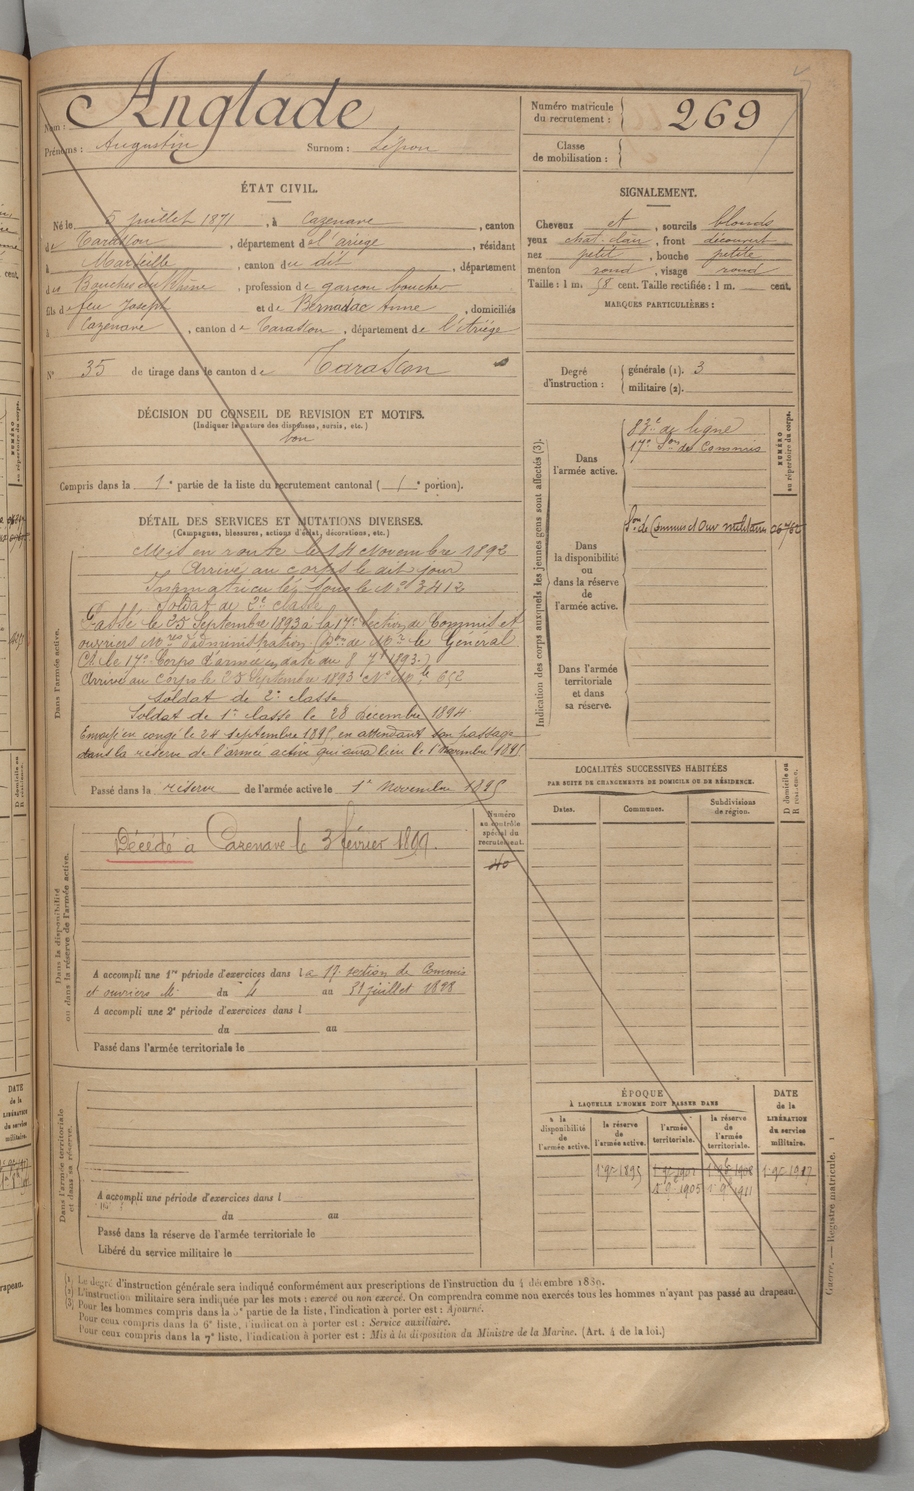 Nom : Anglade
Prénoms : Augustin Surnom : Lépon
Numéro matricule du recrutement : 269
Classe de mobilisation :
ÉTAT CIVIL.
Né le 5 juillet 1871, à Cazenave, canton
de Tarascon, département de l'ariège, résidant
à Marseille, canton du dit, département
des Bouches du Rhône, profession de garçon boucher
fils de feu Joseph et de Bernadac Anne, domiciliés
à Cazenave, canton de Tarascon, département de l'Ariège
N° 35 de tirage dans le canton de Tarascon
SIGNALEMENT.
Cheveux et, sourcils blonds
yeux chat. clair, front découvert
nez petit, bouche petite
menton rond, visage rond
Taille : 1 m. 58 cent. Taille rectifiée : 1 m. cent.
MARQUES PARTICULIÈRES :
Degré d'instruction : générale (1). 3
militaire (2).
DÉCISION DU CONSEIL DE REVISION ET MOTIFS.
(Indiquer la nature des dispenses, sursis, etc.)
bon
Compris dans la 1e partie de la liste du recrutement cantonal ( 1e portion).
DÉTAIL DES SERVICES ET MUTATIONS DIVERSES.
(Campagnes, blessures, actions d'éclat, décorations, etc.)
Dans l'armée active.
Mis en route le 14 Novembre 1892
Arrivé au corps le dit jour
Immatriculé sous le No 3412
Soldat de 2e classe
Passé le 25 Septembre 1893 à la 17e Section de Commis et
ouvriers Mres d'administration (Don de Mr le Général
Ct le 17e Corps d'armée en date du 8 7bre 1893.)
Arrivé au corps le 25 Septembre 1893 No Mle 652
Soldat de 2e classe
Soldat de 1e classe le 28 décembre 1894.
Envoyé en congé le 24 septembre 1895, en attendant son passage
dans la réserve de l'armée active qui aura lieu le 1er Novembre 1895
Passé dans la réserve de l'armée active le 1er Novembre 1895
Indication des corps auxquels les jeunes gens sont affectés (3).
Dans l'armée active.
83e de ligne
17e Son de Commis
NUMÉRO au répertoire du corps.
Dans la disponibilité ou dans la réserve de l'armée active.
Son de Commis et Ouv militaires
Dans l'armée territoriale et dans sa réserve.
Dans la disponibilité ou dans la réserve de l'armée active.
Numéro au contrôle spécial du recrutement.
Décédé à Cazenave le 3 février 1899.
A accompli une 1re période d'exercices dans la 17e section de Commis
et ouvriers M du 4 au 31 juillet 1898
A accompli une 2e période d'exercices dans l
du au
Passé dans l'armée territoriale le
LOCALITÉS SUCCESSIVES HABITÉES
PAR SUITE DE CHANGEMENTS DE DOMICILE OU DE RÉSIDENCE.
Dates. Communes. Subdivisions de région. D domicile ou R résidence.
Dans l'armée territoriale et dans sa réserve.
A accompli une période d'exercices dans l
du au
Passé dans la réserve de l'armée territoriale le
Libéré du service militaire le
ÉPOQUE
À LAQUELLE L'HOMME DOIT PASSER DANS
la disponibilité de l'armée active. la réserve de l'armée active. l'armée territoriale. la réserve de l'armée territoriale.
DATE de la LIBÉRATION du service militaire.
1er 9bre 1895 1er 9bre 1917
1er 9bre 1905 1er 9bre 1911
(1) Le degré d'instruction générale sera indiqué conformément aux prescriptions de l'instruction du 4 décembre 1889.
(2) L'instruction militaire sera indiquée par les mots : exercé ou non exercé. On comprendra comme non exercés tous les hommes n'ayant pas passé au drapeau.
(3) Pour les hommes compris dans la 5e partie de la liste, l'indication à porter est : Ajourné.
Pour ceux compris dans la 6e liste, l'indication à porter est : Service auxiliaire.
Pour ceux compris dans la 7e liste, l'indication à porter est : Mis à la disposition du Ministre de la Marine. (Art. 4 de la loi.)
Guerre. — Registre matricule. 1